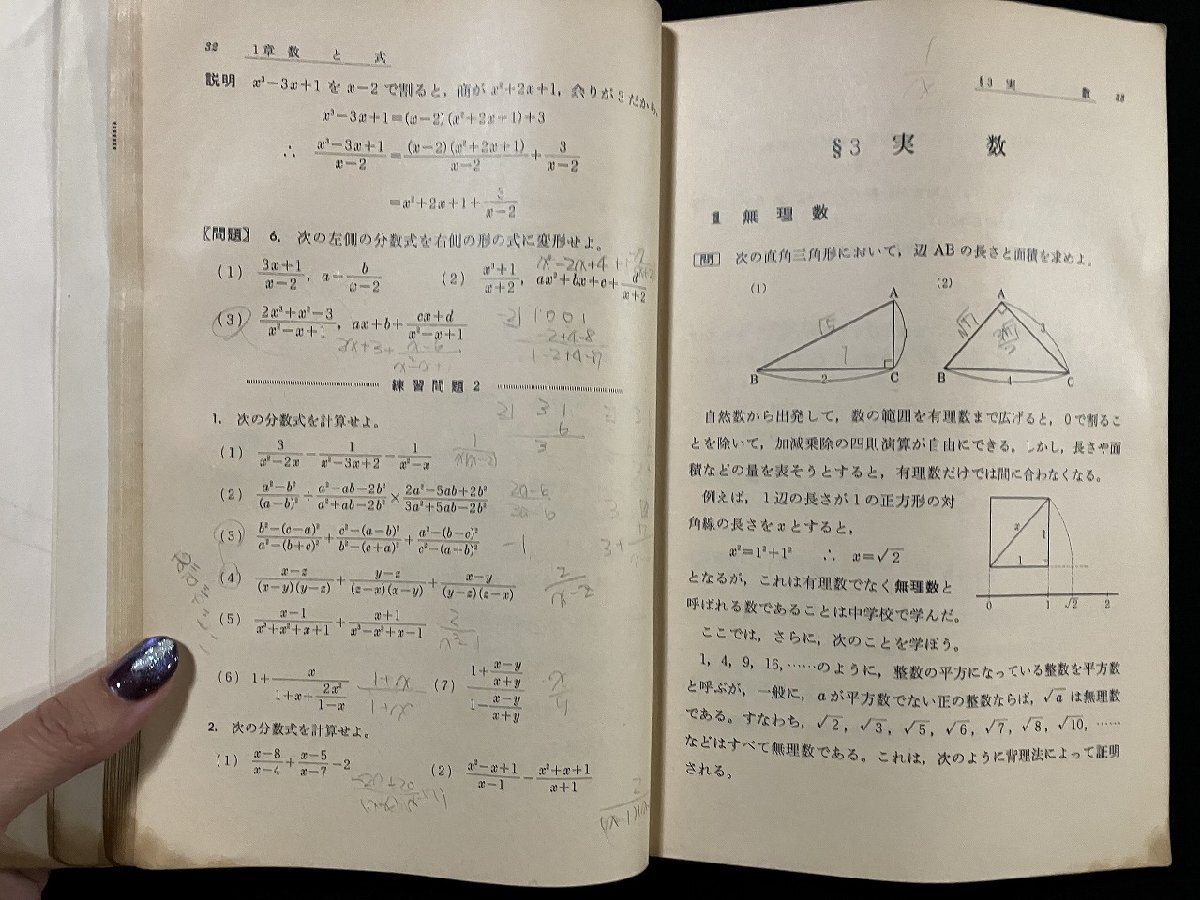 32 1章 数 と 式
説明 x³−3x+1 を x−2 で割ると，商が x²+2x+1，余りが 3 だから，
x³−3x+1=(x−2)(x²+2x+1)+3
∴ (x³−3x+1)/(x−2)=(x−2)(x²+2x+1)/(x−2)+3/(x−2)
=x²+2x+1+3/(x−2)
【問題】 6. 次の左側の分数式を右側の形の式に変形せよ。
(1) (3x+1)/(x−2), a−b/(x−2) (2) (x³+1)/(x+2), ax²+bx+c+d/(x+2)
(3) (2x³+x²−3)/(x²−x+1), ax+b+(cx+d)/(x²−x+1)
練習問題 2
1. 次の分数式を計算せよ。
(1) 3/(x²−2x)−1/(x²−3x+2)−1/(x²−x)
(2) (a²−b²)/(a−b)²÷(a²−ab−2b²)/(a²+ab−2b²)×(2a²−5ab+2b²)/(3a²+5ab−2b²)
(3) (b²−(c−a)²)/(c²−(b+c)²)+(c²−(a−b)²)/(b²−(c+a)²)+(a²−(b−c)²)/(c²−(a−b)²)
−1
(4) (x−z)/((x−y)(y−z))+(y−z)/((z−x)(x−y))+(x−y)/((y−z)(z−x))
(5) (x−1)/(x³+x²+x+1)+(x+1)/(x³−x²+x−1)
(6) 1+x/(1+x+2x²/(1−x)) (7) (1+(x−y)/(x+y))/(1−(x−y)/(x+y))
2. 次の分数式を計算せよ。
(1) (x−8)/(x−4)+(x−5)/(x−7)−2 (2) (x²−x+1)/(x−1)−(x²+x+1)/(x+1)
§3 実 数 33
§3 実 数
1 無理数
[問] 次の直角三角形において，辺 AB の長さと面積を求めよ。
(1) (2)
A A
√5
1
3
B 2 C B 4 C
自然数から出発して，数の範囲を有理数まで広げると，0で割るこ
とを除いて，加減乗除の四則演算が自由にできる。しかし，長さや面
積などの量を表そうとすると，有理数だけでは間に合わなくなる。
例えば，1辺の長さが1の正方形の対
角線の長さを x とすると，
x²=1²+1² ∴ x=√2
となるが，これは有理数でなく無理数と
呼ばれる数であることは中学校で学んだ。
x 1 1
0 1 √2 2
ここでは，さらに，次のことを学ぼう。
1, 4, 9, 16, ……のように，整数の平方になっている整数を平方数
と呼ぶが，一般に，a が平方数でない正の整数ならば，√a は無理数
である。すなわち，√2, √3, √5, √6, √7, √8, √10, ……
などはすべて無理数である。これは，次のように背理法によって証明
される。